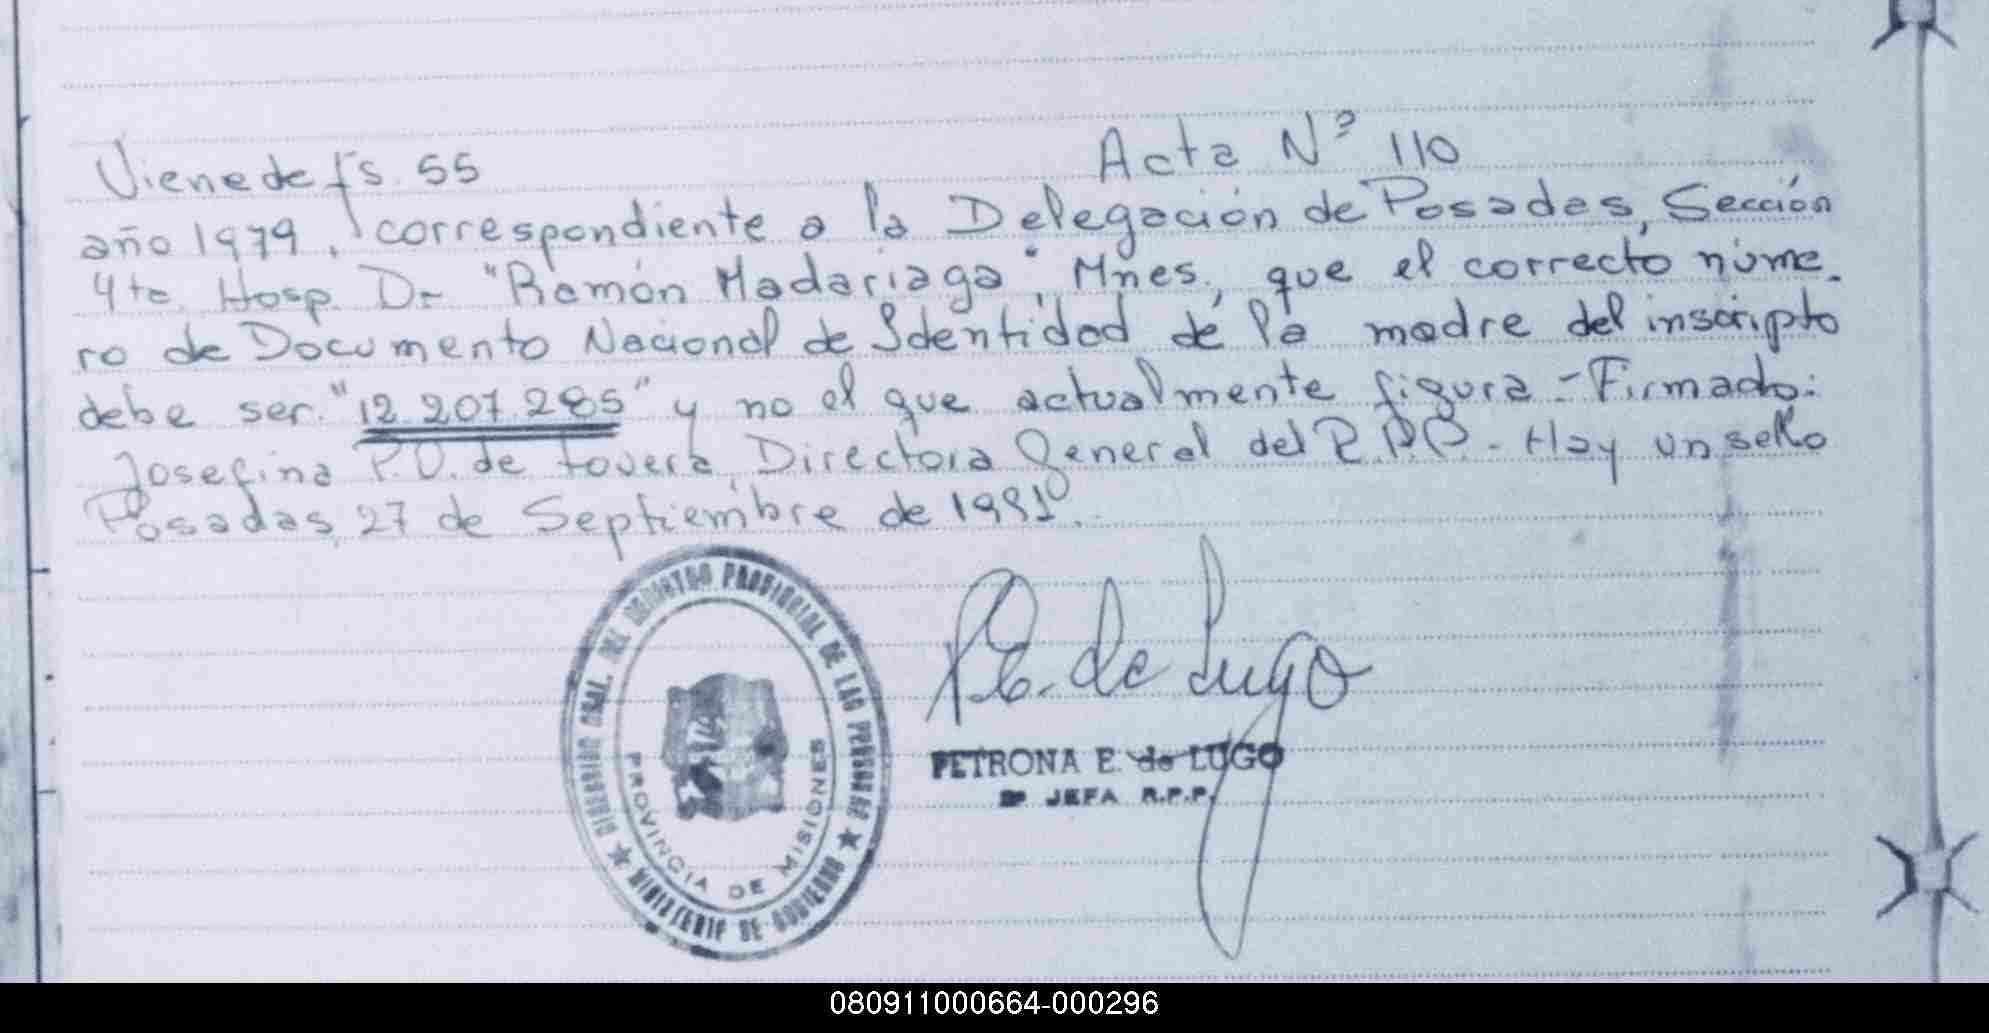 Viene de fs. 55
Acta Nº 110
año 1979, correspondiente a la Delegación de Posadas, Sección
4ta. Hosp. Dr. "Ramón Madariaga", Mnes., que el correcto núme-
ro de Documento Nacional de Identidad de la madre del inscripto
debe ser: "12.207.285" y no el que actualmente figura - Firmado:
Josefina P.O. de Tovera, Directora General del R.P.P. - Hay un sello
Posadas, 27 de Septiembre de
DIRECCION GRAL. DEL REGISTRO PROVINCIAL DE LAS PERSONAS
PROVINCIA DE MISIONES
MINISTERIO DE GOBIERNO
P.E. de Lugo
PETRONA E. de LUGO
JEFA R.P.P.
080911000664-000296